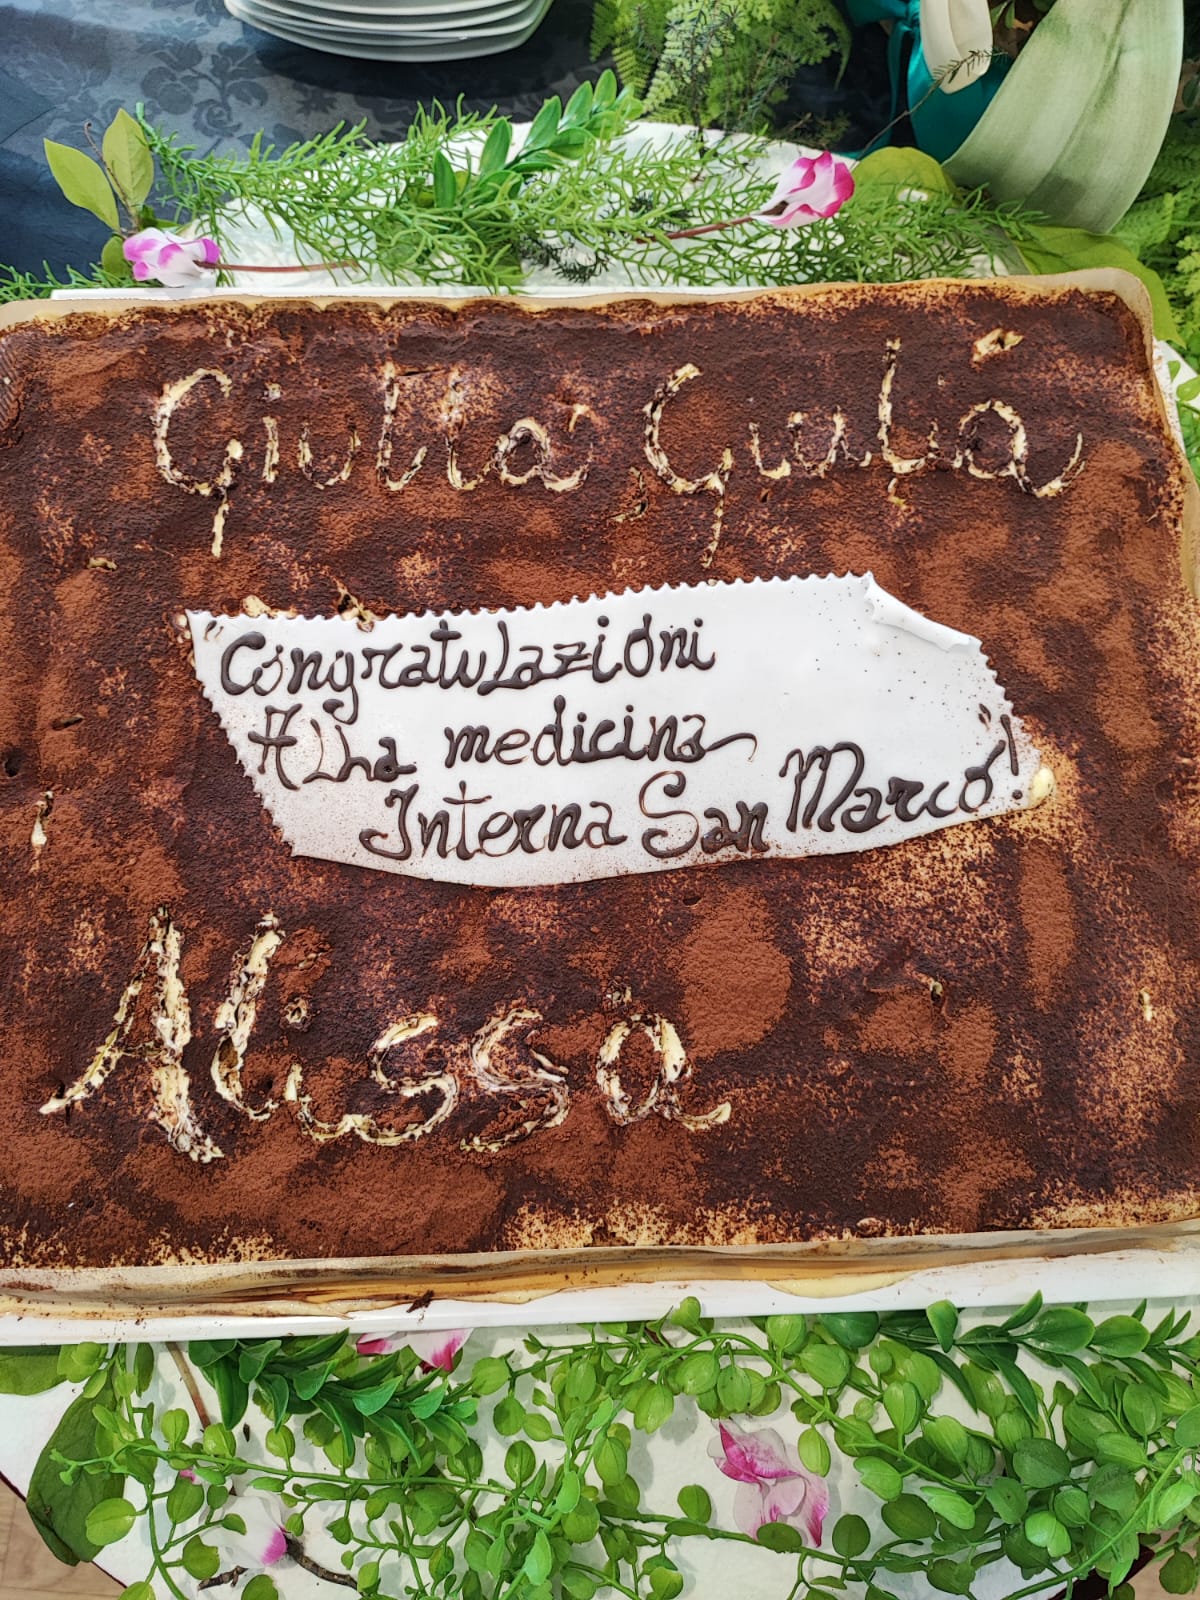 Giulia Giulia
"Congratulazioni
Alla medicina
Interna San Marco"!
Alissa